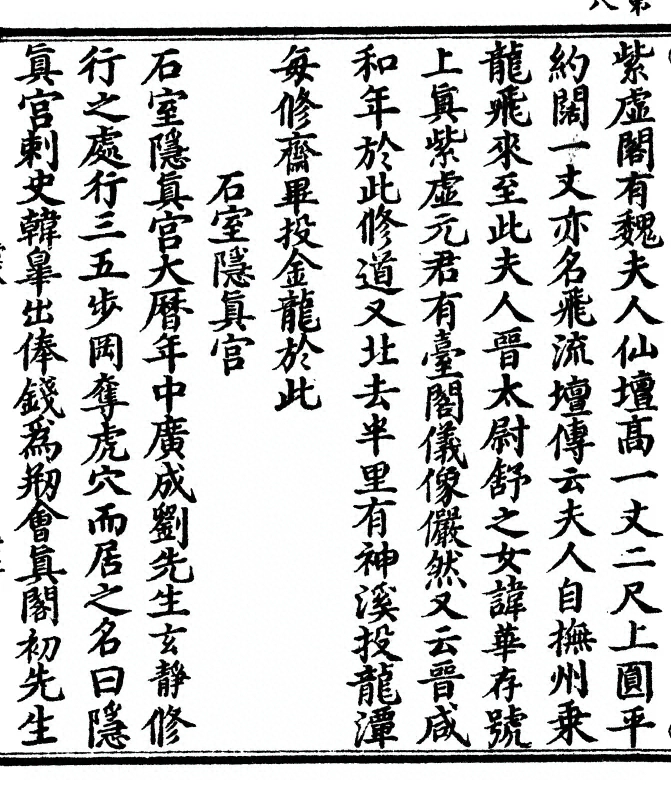 紫虛閣有魏夫人仙壇高一丈二尺上圓平
約闊一丈亦名飛流壇傳云夫人自撫州乗
龍飛來至此夫人晉太尉舒之女諱華存號
上眞紫虛元君有臺閣儀像儼然又云晉咸
和年於此修道又北去半里有神溪投龍潭
每修齋畢投金龍於此
石室隱眞宮
石室隱眞宮大曆年中廣成劉先生玄靜修
行之處行三五步岡奪虎穴而居之名曰隱
眞宮刺史韓皐出俸錢爲剏會眞閣初先生